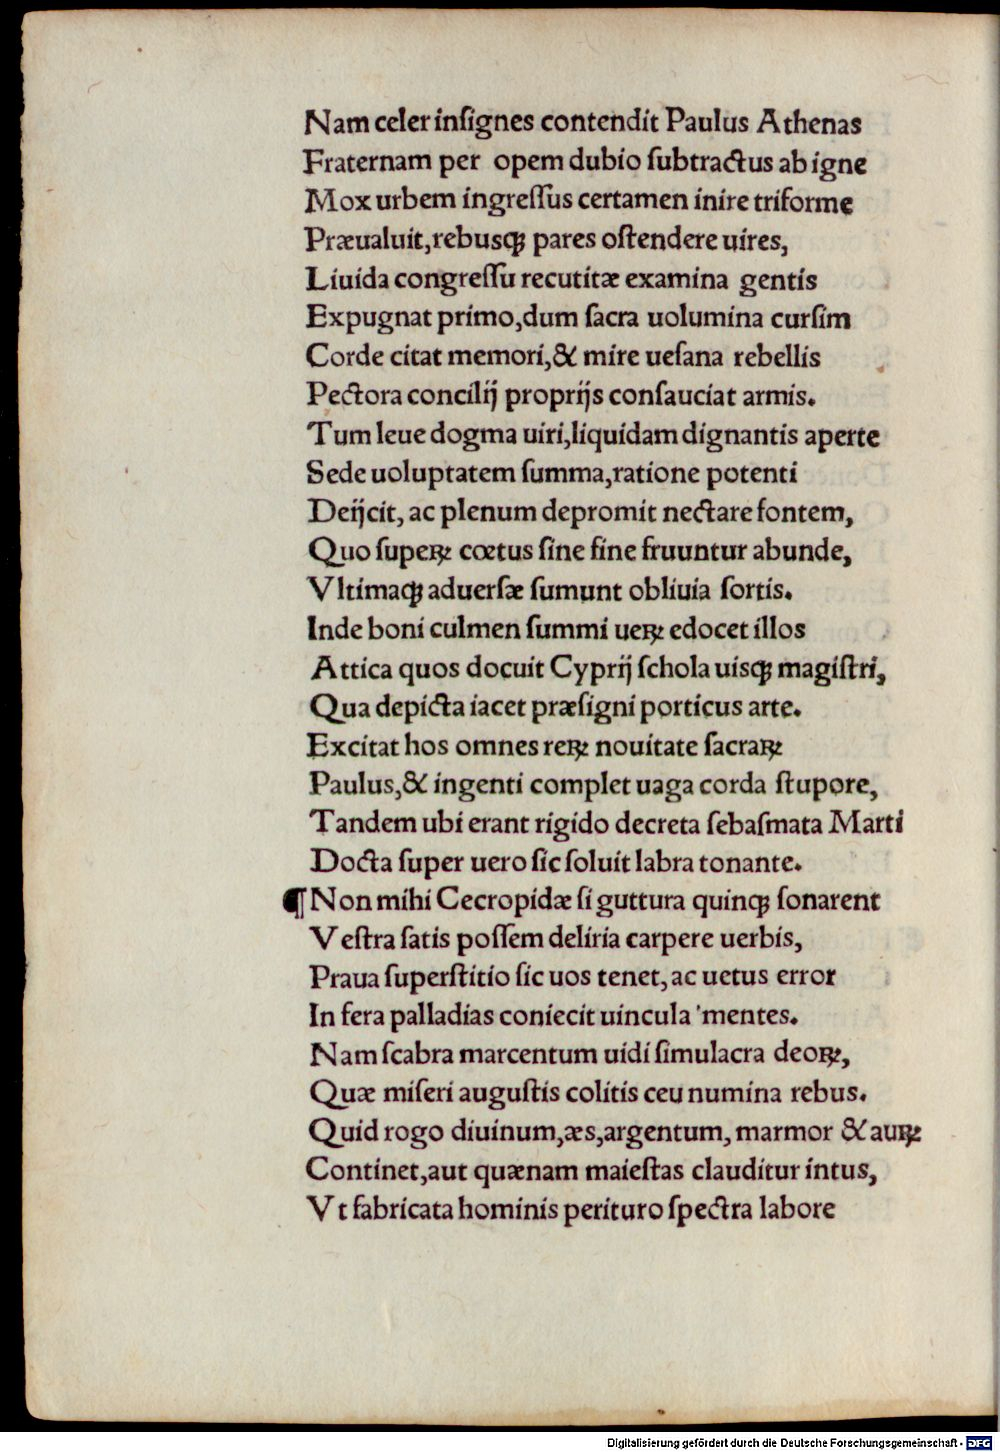 Nam celer inſignes contendit Paulus Athenas
Fraternam per opem dubio ſubtractus ab igne
Mox urbem ingreſſus certamen inire triforme
Præualuit,rebusꝗ pares oſtendere uires,
Liuida congreſſu recutitæ examina gentis
Expugnat primo,dum ſacra uolumina curſim
Corde citat memori,& mire ueſana rebellis
Pectora concilij proprijs conſauciat armis.
Tum leue dogma uiri,liquidam dignantis aperte
Sede uoluptatem ſumma,ratione potenti
Deijcit, ac plenum depromit nectare fontem,
Quo ſupeꝝ cœtus ſine fine fruuntur abunde,
Vltimaꝗ aduerſæ ſumunt obliuia ſortis.
Inde boni culmen ſummi ueꝝ edocet illos
Attica quos docuit Cyprij ſchola uisꝗ magiſtri,
Qua depicta iacet præſigni porticus arte.
Excitat hos omnes reꝝ nouitate ſacraꝝ
Paulus,& ingenti complet uaga corda ſtupore,
Tandem ubi erant rigido decreta ſebaſmata Marti
Docta ſuper uero ſic ſoluit labra tonante.
¶Non mihi Cecropidæ ſi guttura quinꝗ ſonarent
Veſtra ſatis poſſem deliria carpere uerbis,
Praua ſuperſtitio ſic uos tenet, ac uetus error
In fera palladias coniecit uincula 'mentes.
Nam ſcabra marcentum uidi ſimulacra deoꝝ,
Quæ miſeri auguſtis colitis ceu numina rebus.
Quid rogo diuinum,æs,argentum, marmor & auꝝ
Continet,aut quænam maieſtas clauditur intus,
Vt fabricata hominis perituro ſpectra labore
Digitalisierung gefördert durch die Deutsche Forschungsgemeinschaft - DFG